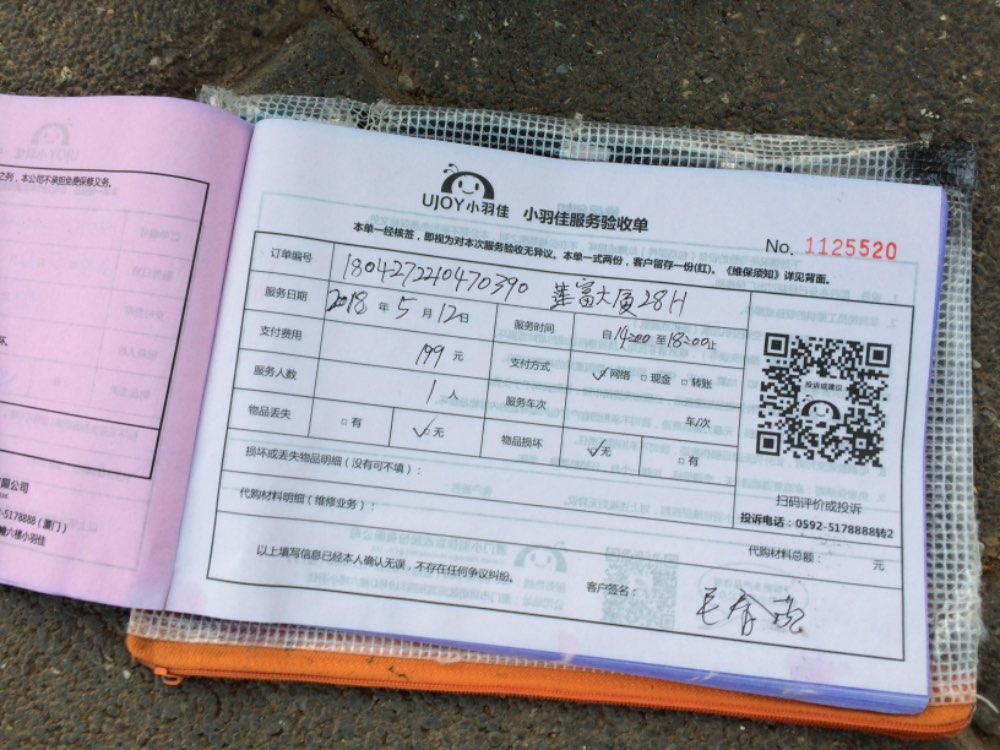 之列，本公司不承担免费保修义务。
UJOY小羽佳 小羽佳服务验收单
No. 1125520
本单一经核签，即视为对本次服务验收无异议。本单一式两份，客户留存一份(红)。《维保须知》详见背面。
订单编号 180427221047039 0 莲富大厦28H
服务日期 2018 年 5 月 12 日 服务时间 自 14:00 至 18:00 止
支付费用 199 元 支付方式 ✓网络 □现金 □转账
服务人数 1 人 服务车次 车/次
物品丢失 □有 ✓□无 物品损坏 ✓无 □有
投诉或建议
扫码评价或投诉
投诉电话：0592-5178888转2
损坏或丢失物品明细（没有可不填）：
代购材料明细（维修业务）：
代购材料总额： 元
以上填写信息已经本人确认无误，不存在任何争议纠纷。
客户签名：
限公司
-5178888（厦门）
六楼小羽佳